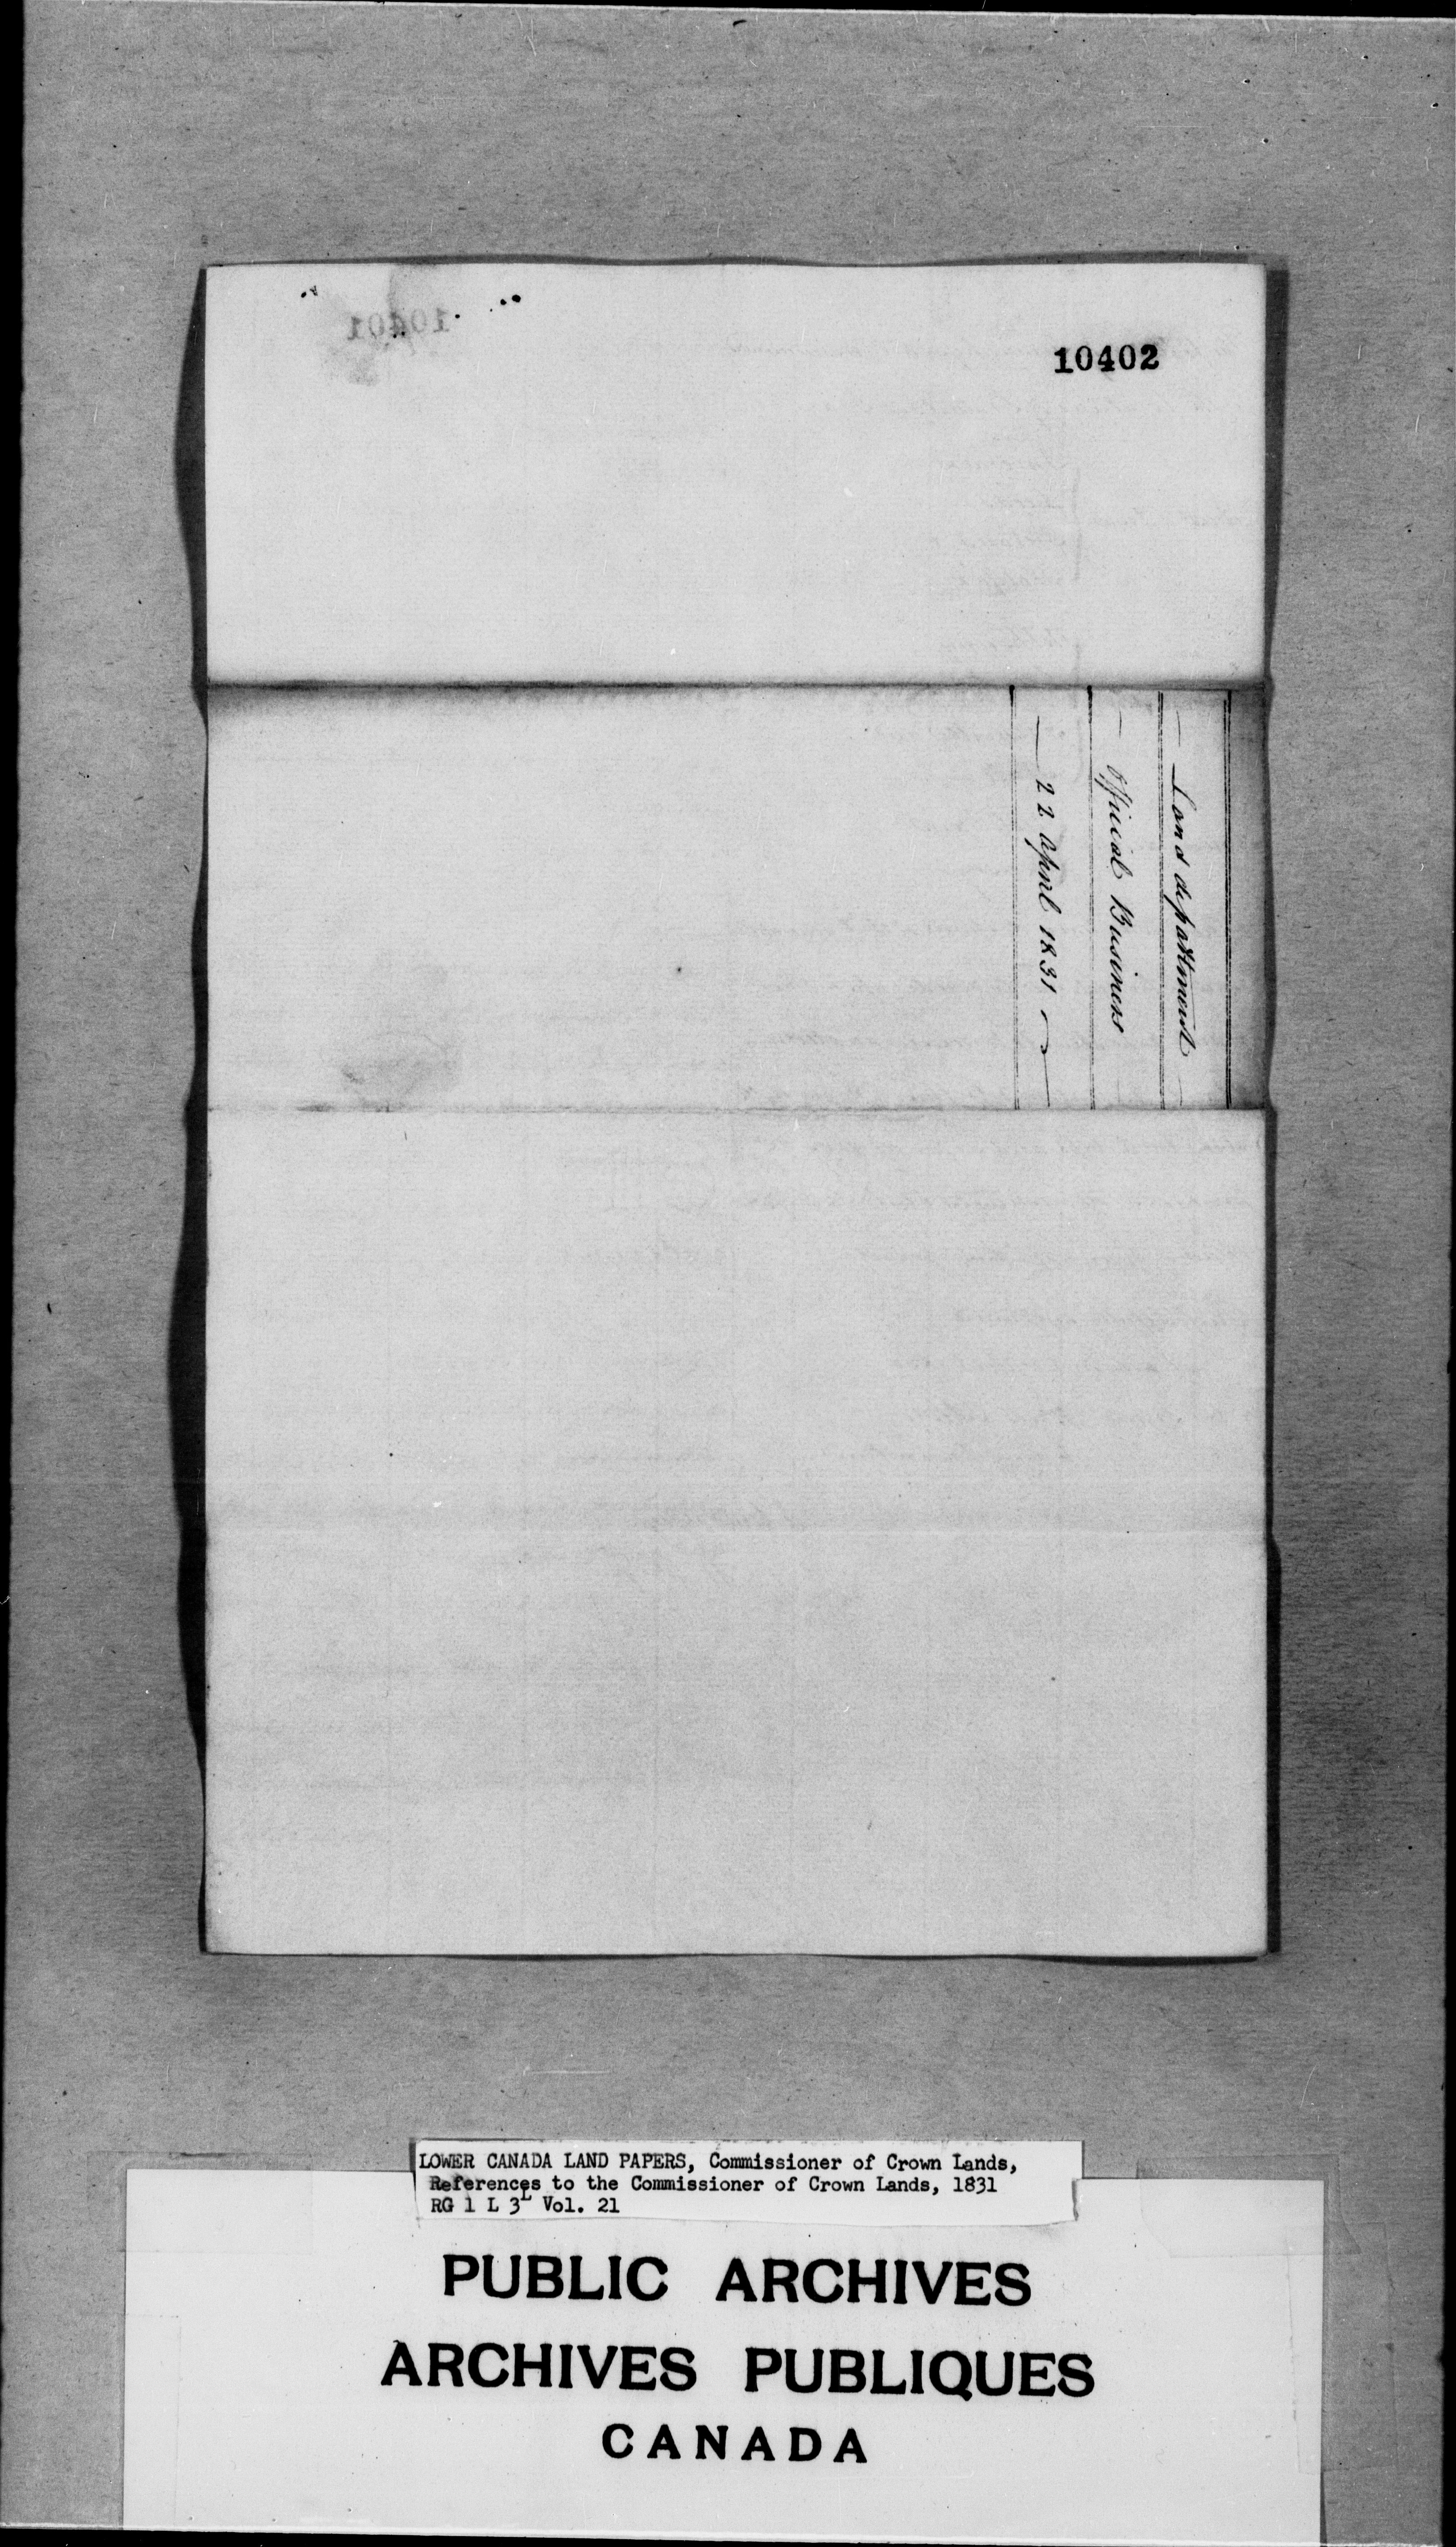 10401
10402
— Land department —
— Official Business
— 22 april 1831 —
LOWER CANADA LAND PAPERS, Commissioner of Crown Lands,
References to the Commissioner of Crown Lands, 1831
RG 1 L 3L Vol. 21
PUBLIC ARCHIVES
ARCHIVES PUBLIQUES
CANADA